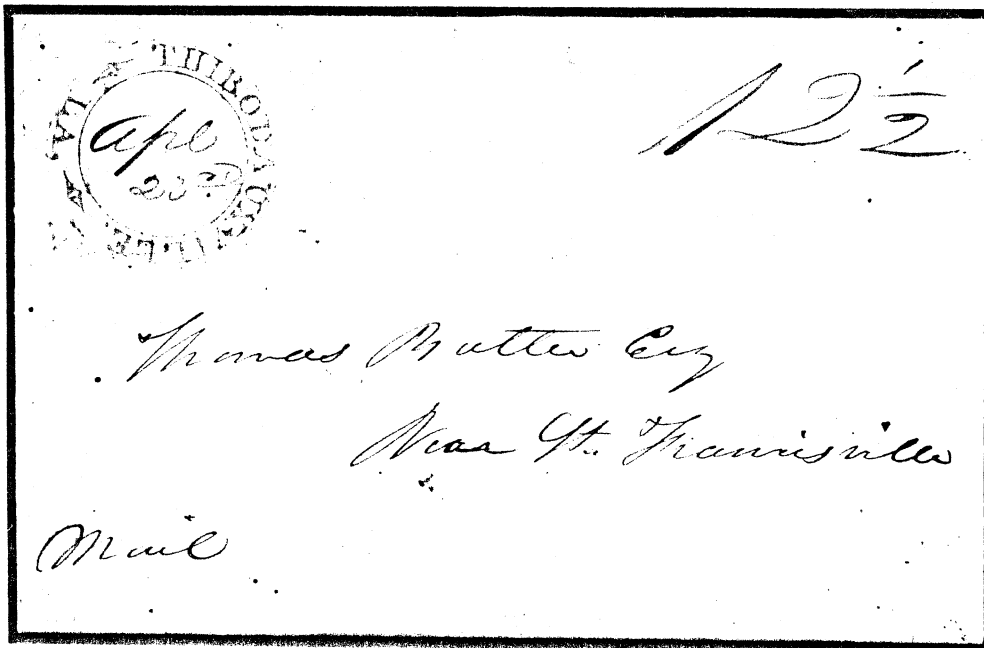 THIBODAUXVILLE LA
Apl
23rd
12 1/2
Thomas Butler Esq
Near St. Francisville
Mail